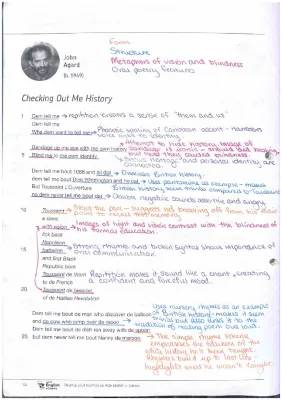 John
Agard
(b. 1949)
Form
Structure
Metaphors of vision and blindness
Oral poetry features
Checking Out Me History
1 Dem tell me → repetition creates a sense of "them and us"
Dem tell me
Wha dem want to tell me → Phonetic spelling of Caribbean accent - narrators
voice and his identity
Bandage up me eye with me own history → Attempt to hide history. Image of
bandage is ironic - should help healing
but here they caused blindness.
5 Blind me to me own identity
history and personal identity are
connected.
Dem tell me bout 1066 and all dat → Dismisses British history.
dem tell me bout Dick Whittington and he cat → Uses pantomime as example - makes
But Toussaint L'Ouverture British history seem trivial compared to L'ouverture
no dem never tell me bout dat → Double negative sounds assertive and angry
10 Toussaint
a slave
with vision → Images of light and vision contrast with the blindness of
his formal education.
lick back
Napoleon
15 battalion → Strong rhymes and broken syntax shows importance of
oral communication.
and first Black
Republic born
Toussaint de thorn Repetition makes it sound like a chant, creating
to de French a confident and forceful mood.
20 Toussaint de beacon
of de Haitian Revolution
Dem tell me bout de man who discover de balloon
and de cow who jump over de moon
Dem tell me bout de dish run away with de spoon
25 but dem never tell me bout Nanny de maroon
Uses nursery rhymes as an example
of British history - makes it seem
trivial but also links it to the
tradition of reading poems out loud.
The simple rhyme scheme
emphasises the
white history he's been taught.
Rhymes build up to last line
highlights what he wasn't taught